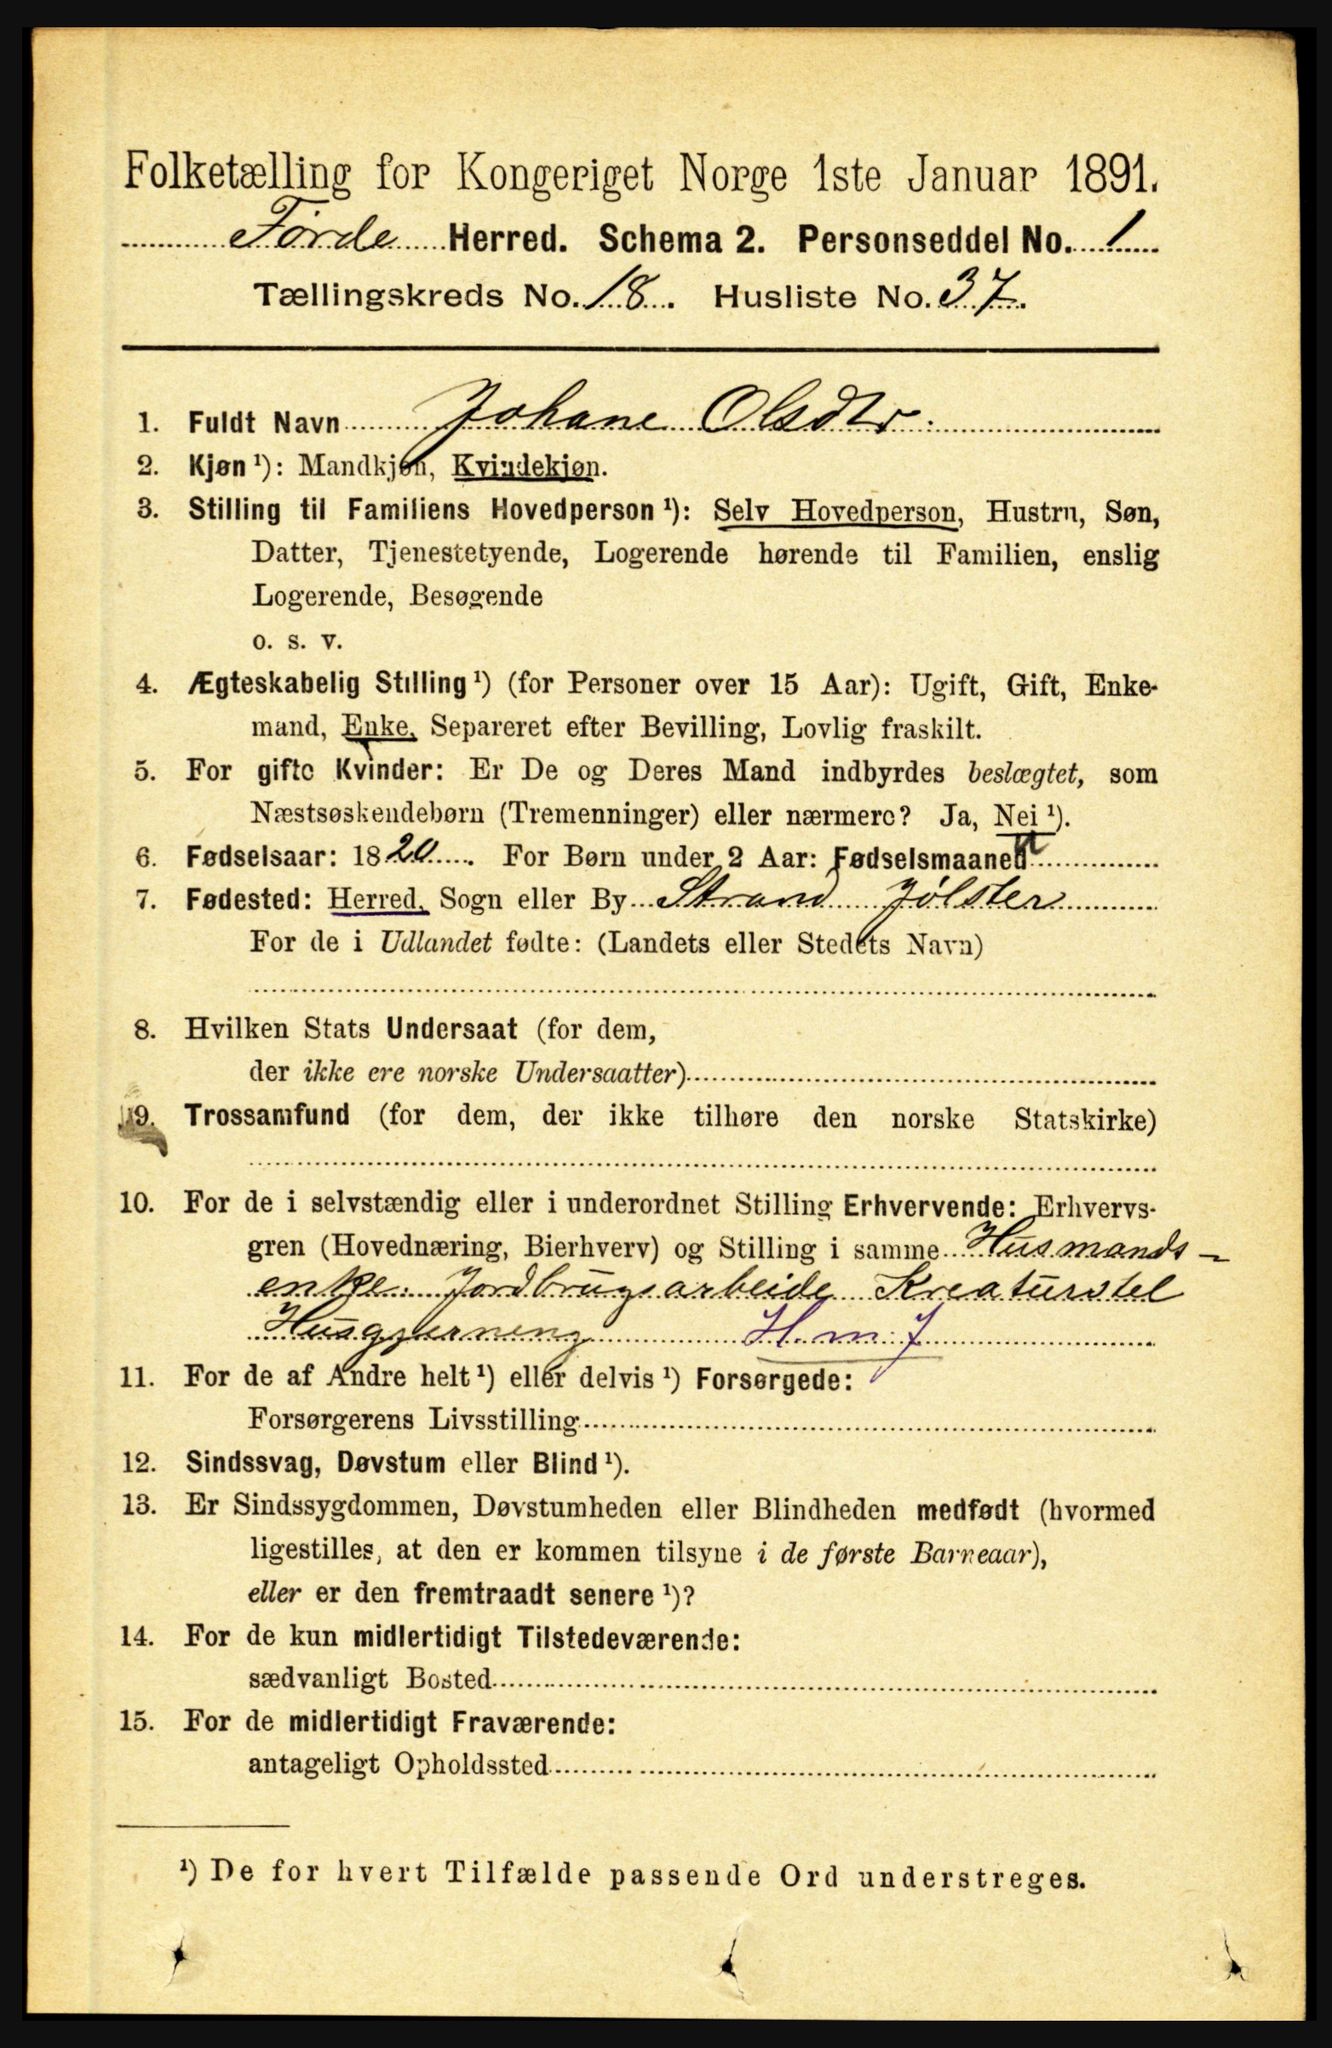 Folketælling for Kongeriget Norge 1ste Januar 1891.
Førde Herred. Schema 2. Personseddel No. 1
Tællingskreds No. 18. Husliste No. 37.
1. Fuldt Navn Johane Olsdtr.
2. Kjøn¹): Mandkjøn, Kvindekjøn.
3. Stilling til Familiens Hovedperson¹): Selv Hovedperson, Hustru, Søn,
Datter, Tjenestetyende, Logerende hørende til Familien, enslig
Logerende, Besøgende
o. s. v.
4. Ægteskabelig Stilling¹) (for Personer over 15 Aar): Ugift, Gift, Enke-
mand, Enke, Separeret efter Bevilling, Lovlig fraskilt.
5. For gifte Kvinder: Er De og Deres Mand indbyrdes beslægtet, som
Næstsøskendebørn (Tremenninger) eller nærmere? Ja, Nei¹).
6. Fødselsaar: 1820. For Børn under 2 Aar: Fødselsmaaned
7. Fødested: Herred, Sogn eller By Strand Jølster
For de i Udlandet fødte: (Landets eller Stedets Navn)
8. Hvilken Stats Undersaat (for dem,
der ikke ere norske Undersaatter)
9. Trossamfund (for dem, der ikke tilhøre den norske Statskirke)
10. For de i selvstændig eller i underordnet Stilling Erhvervende: Erhvervs-
gren (Hovednæring, Bierhverv) og Stilling i samme Husmands-
enke. Jordbrugsarbeide Kreaturstel
Husgjerning H. m. J
11. For de af Andre helt¹) eller delvis¹) Forsørgede:
Forsørgerens Livsstilling
12. Sindssvag, Døvstum eller Blind¹).
13. Er Sindssygdommen, Døvstumheden eller Blindheden medfødt (hvormed
ligestilles, at den er kommen tilsyne i de første Barneaar),
eller er den fremtraadt senere¹)?
14. For de kun midlertidigt Tilstedeværende:
sædvanligt Bosted
15. For de midlertidigt Fraværende:
antageligt Opholdssted
¹) De for hvert Tilfælde passende Ord understreges.